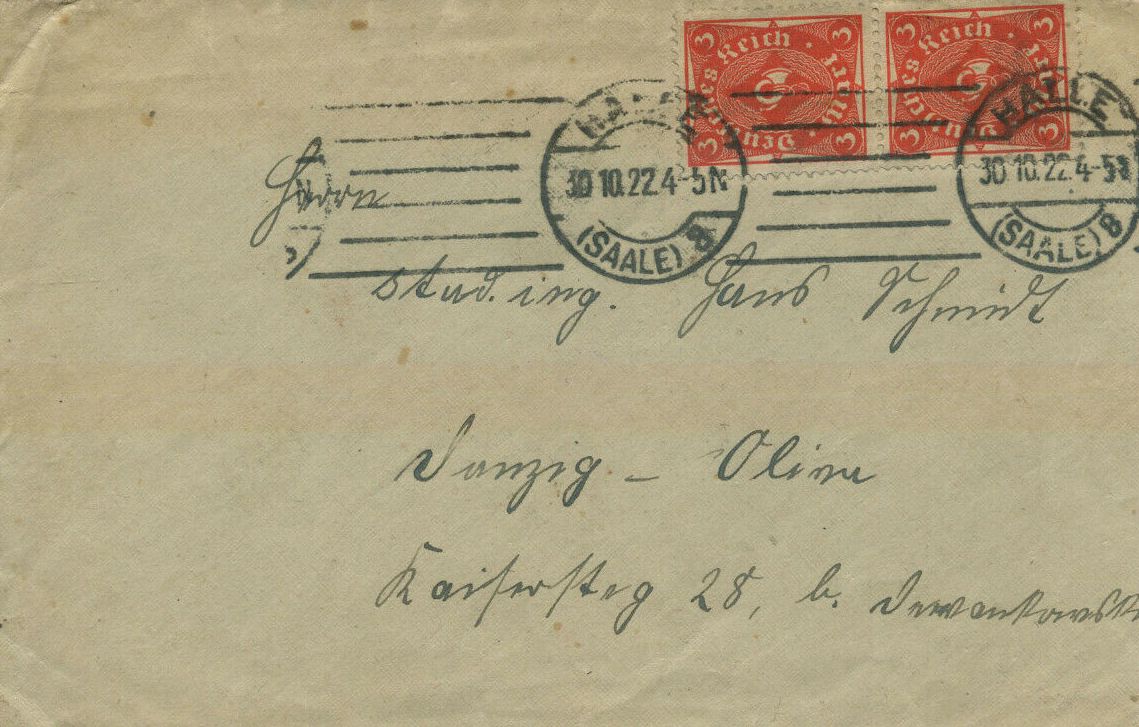 3 Deutsches Reich · 3 Mark · 3 3
3 Deutsches Reich · 3 Mark · 3 3
HALLE HALLE
30 10.22.4-5N 30 10.22.4-5N
(SAALE) 8 (SAALE) 8
Herrn
stud. ing. Hans Schmidt
Danzig - Oliva
Kaisersteg 28, b.